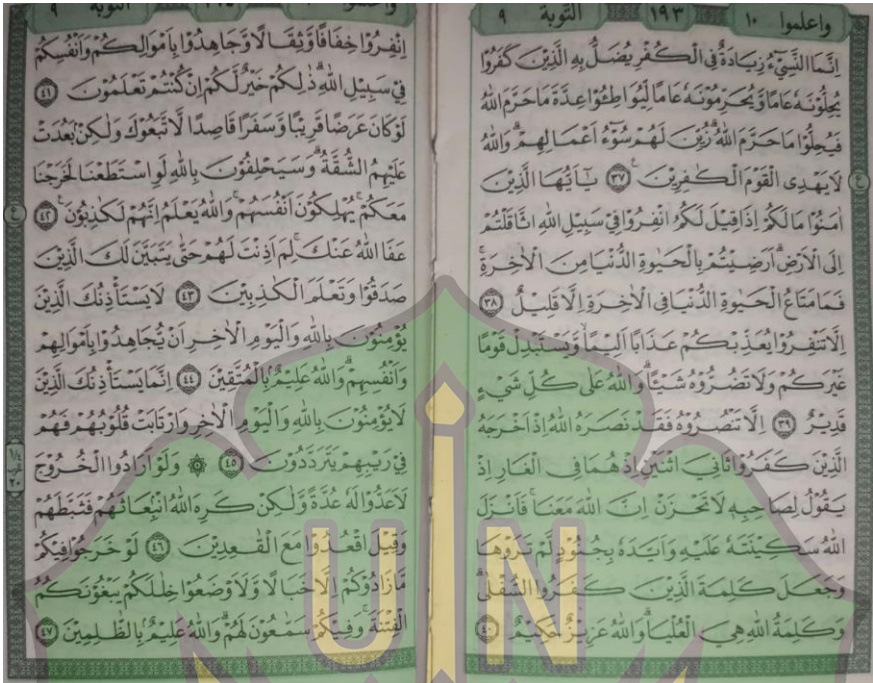 واعلموا ١٠ ١٩٣ التَّوبة ٩
اِنَّمَا النَّسِيْٓءُ زِيَادَةٌ فِى الْكُفْرِ يُضَلُّ بِهِ الَّذِيْنَ كَفَرُوْا
يُحِلُّوْنَهٗ عَامًا وَّيُحَرِّمُوْنَهٗ عَامًا لِّيُوَاطِـُٔوْا عِدَّةَ مَا حَرَّمَ اللّٰهُ
فَيُحِلُّوْا مَا حَرَّمَ اللّٰهُ ۗزُيِّنَ لَهُمْ سُوْۤءُ اَعْمَالِهِمْ ۗوَاللّٰهُ
لَا يَهْدِى الْقَوْمَ الْكٰفِرِيْنَ ࣖ ٣٧ يٰٓاَيُّهَا الَّذِيْنَ
اٰمَنُوْا مَا لَكُمْ اِذَا قِيْلَ لَكُمُ انْفِرُوْا فِيْ سَبِيْلِ اللّٰهِ اثَّاقَلْتُمْ
اِلَى الْاَرْضِ ۗاَرَضِيْتُمْ بِالْحَيٰوةِ الدُّنْيَا مِنَ الْاٰخِرَةِ ۚ
فَمَا مَتَاعُ الْحَيٰوةِ الدُّنْيَا فِى الْاٰخِرَةِ اِلَّا قَلِيْلٌ ٣٨
اِلَّا تَنْفِرُوْا يُعَذِّبْكُمْ عَذَابًا اَلِيْمًاۙ وَّيَسْتَبْدِلْ قَوْمًا
غَيْرَكُمْ وَلَا تَضُرُّوْهُ شَيْـًٔاۗ وَاللّٰهُ عَلٰى كُلِّ شَيْءٍ
قَدِيْرٌ ٣٩ اِلَّا تَنْصُرُوْهُ فَقَدْ نَصَرَهُ اللّٰهُ اِذْ اَخْرَجَهُ
الَّذِيْنَ كَفَرُوْا ثَانِيَ اثْنَيْنِ اِذْ هُمَا فِى الْغَارِ اِذْ
يَقُوْلُ لِصَاحِبِهٖ لَا تَحْزَنْ اِنَّ اللّٰهَ مَعَنَاۚ فَاَنْزَلَ
اللّٰهُ سَكِيْنَتَهٗ عَلَيْهِ وَاَيَّدَهٗ بِجُنُوْدٍ لَّمْ تَرَوْهَا
وَجَعَلَ كَلِمَةَ الَّذِيْنَ كَفَرُوا السُّفْلٰىۗ
وَكَلِمَةُ اللّٰهِ هِيَ الْعُلْيَاۗ وَاللّٰهُ عَزِيْزٌ حَكِيْمٌ ٤٠
التوبة ٩
اِنْفِرُوْا خِفَافًا وَّثِقَالًا وَّجَاهِدُوْا بِاَمْوَالِكُمْ وَاَنْفُسِكُمْ
فِيْ سَبِيْلِ اللّٰهِ ۗذٰلِكُمْ خَيْرٌ لَّكُمْ اِنْ كُنْتُمْ تَعْلَمُوْنَ ٤١
لَوْ كَانَ عَرَضًا قَرِيْبًا وَّسَفَرًا قَاصِدًا لَّاتَّبَعُوْكَ وَلٰكِنْۢ بَعُدَتْ
عَلَيْهِمُ الشُّقَّةُ ۗوَسَيَحْلِفُوْنَ بِاللّٰهِ لَوِ اسْتَطَعْنَا لَخَرَجْنَا
مَعَكُمْۚ يُهْلِكُوْنَ اَنْفُسَهُمْۚ وَاللّٰهُ يَعْلَمُ اِنَّهُمْ لَكٰذِبُوْنَ ࣖ ٤٢
عَفَا اللّٰهُ عَنْكَۚ لِمَ اَذِنْتَ لَهُمْ حَتّٰى يَتَبَيَّنَ لَكَ الَّذِيْنَ
صَدَقُوْا وَتَعْلَمَ الْكٰذِبِيْنَ ٤٣ لَا يَسْتَأْذِنُكَ الَّذِيْنَ
يُؤْمِنُوْنَ بِاللّٰهِ وَالْيَوْمِ الْاٰخِرِ اَنْ يُّجَاهِدُوْا بِاَمْوَالِهِمْ
وَاَنْفُسِهِمْۗ وَاللّٰهُ عَلِيْمٌۢ بِالْمُتَّقِيْنَ ٤٤ اِنَّمَا يَسْتَأْذِنُكَ الَّذِيْنَ
لَا يُؤْمِنُوْنَ بِاللّٰهِ وَالْيَوْمِ الْاٰخِرِ وَارْتَابَتْ قُلُوْبُهُمْ فَهُمْ
فِيْ رَيْبِهِمْ يَتَرَدَّدُوْنَ ٤٥ ۞ وَلَوْ اَرَادُوا الْخُرُوْجَ
لَاَعَدُّوْا لَهٗ عُدَّةً وَّلٰكِنْ كَرِهَ اللّٰهُ انْۢبِعَاثَهُمْ فَثَبَّطَهُمْ
وَقِيْلَ اقْعُدُوْا مَعَ الْقٰعِدِيْنَ ٤٦ لَوْ خَرَجُوْا فِيْكُمْ
مَّا زَادُوْكُمْ اِلَّا خَبَالًا وَّلَا۟اَوْضَعُوْا خِلٰلَكُمْ يَبْغُوْنَكُمُ
الْفِتْنَةَۚ وَفِيْكُمْ سَمّٰعُوْنَ لَهُمْۗ وَاللّٰهُ عَلِيْمٌۢ بِالظّٰلِمِيْنَ ٤٧
UIN